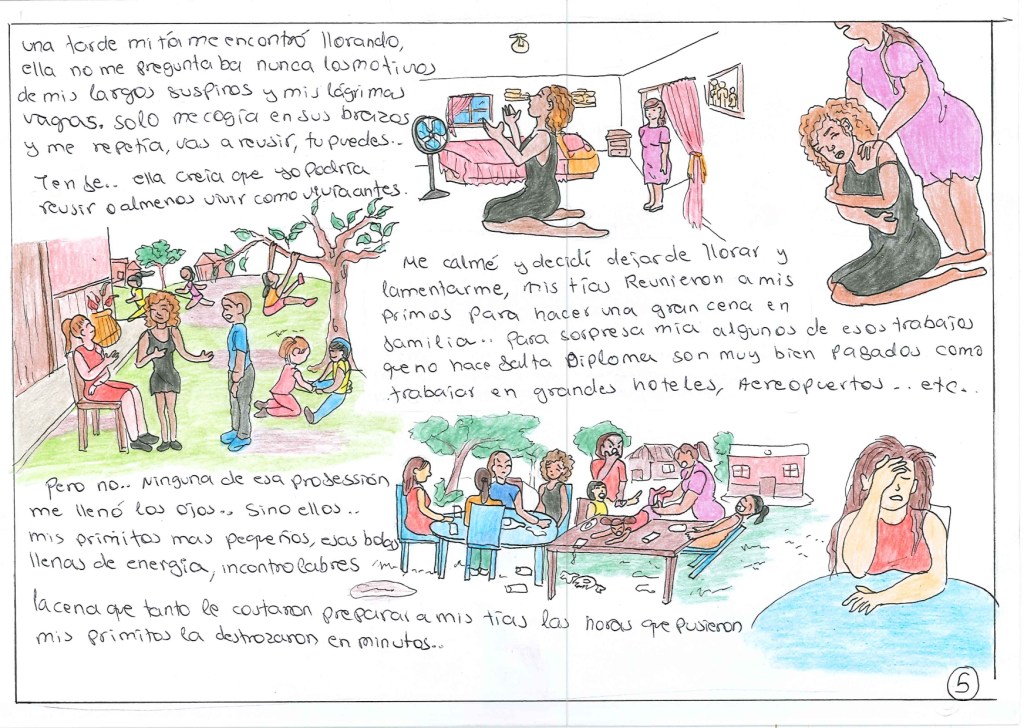 una tarde mi tía me encontró llorando,
ella no me preguntaba nunca los motivos
de mis largos suspiros y mis lágrimas
vagas. solo me cogía en sus brazos
y me repetía, vas a reusir, tu puedes..
Ten fe.. ella creia que yo podría
reusir o almenos vivir como vivía antes.
Me calmé y decidí dejar de llorar y
lamentarme, mis tías Reunieron a mis
primos para hacer una gran cena en
familia.. Para sorpresa mia algunos de esos trabajos
que no hace falta Diploma son muy bien Pagados como
trabajar en grandes hoteles, Aereopuertos.. etc..
Pero no.. Ninguna de esa profession
me llenó los ojos.. Sino ellos..
mis primitos mas pequeños, esas bolas
llenas de energía, incontrolabres
la cena que tanto le costaron preparar a mis tías las horas que pusieron
mis primitos la destrozaron en minutos..
5